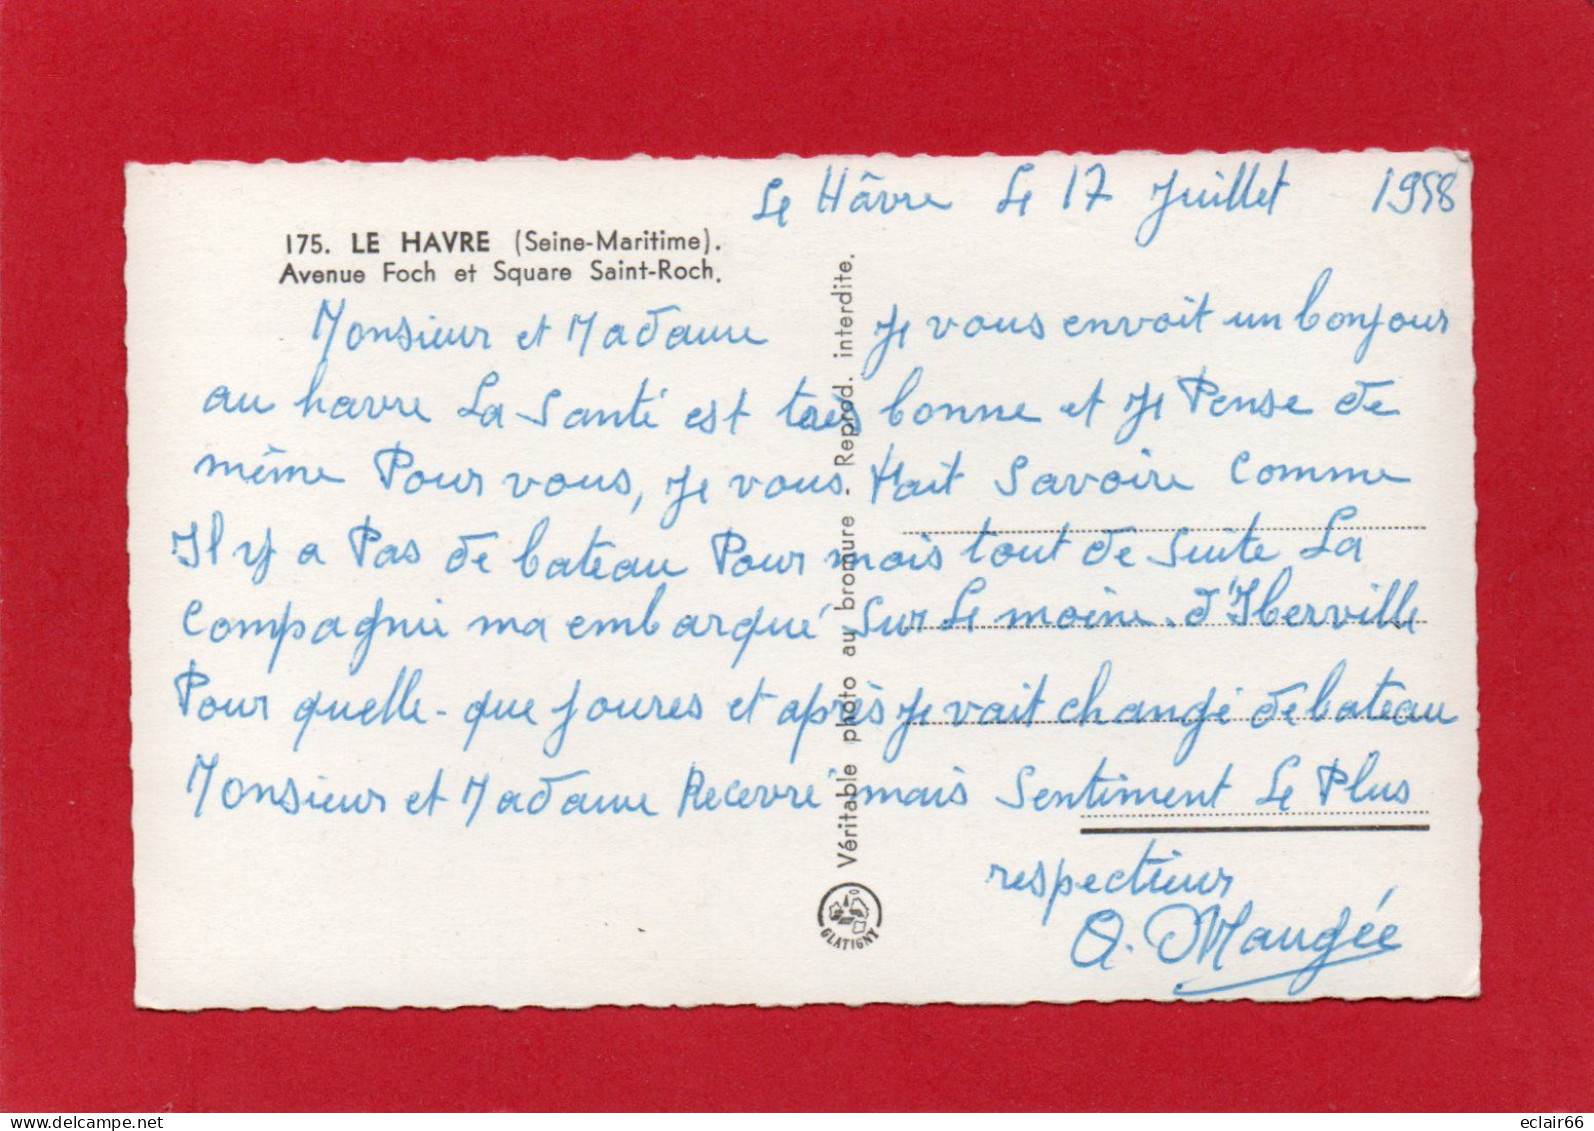 Le Hâvre Le 17 Juillet 1958
175. LE HAVRE (Seine-Maritime).
Avenue Foch et Square Saint-Roch.
Monsieur et Madame Je vous envoit un bonjour
au havre La Santé est tres bonne et je Pense de
même Pour vous, je vous fait Savoire Comme
Il y a Pas de bateau Pour mois tout de Suite La
Compagnie ma embarqué Sur Le moine. d'Iberville
Pour quelle-que joures et après je vait changé de bateau
Monsieur et Madame Recevré mais Sentiment Le Plus
respectieur
A. Maugée
Véritable photo au bromure - Reprod. interdite.
GLATIGNY
delcampe.net
eclair66